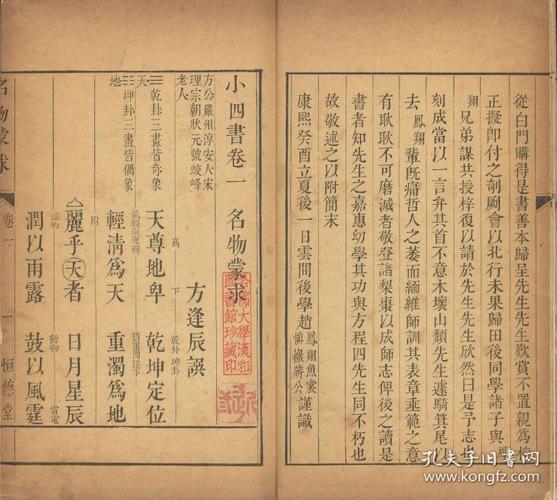 從白門購得是書善本歸呈先生先生欣賞不置親為校
正擬卽付之剞劂會以北行未果歸田後同學諸子與鳳
翔兄弟謀共授梓復以請於先生先生欣然曰是予志也
刻成當以一言弁其首不意木壞山頹先生遽騎箕尾以
去鳳翔輩旣痛哲人之萎而緬維師訓其表章垂範之意
有耿耿不可磨滅者敬登諸梨棗以成師志俾後之讀是
書者知先生之嘉惠幼學其功與方程四先生同不朽也
故敬述之以附簡末
康熙癸酉立夏後一日雲間後學趙鳳翔魚裳謹識
小四書卷一 名物蒙求
方公嚴州淳安人宋
理宗朝狀元號蛟峰
老人
方逢辰譔
天 乾卦三畫皆奇象
地 坤卦三畫皆偶象
天尊地卑 乾坤定位
高 下 乾卦坤卦
輕清為天 重濁為地
麗乎天者 日月星辰
附
潤以雨露 鼓以風霆
滋物 動物 雷電
名物蒙求
卷一
一
恒德堂
孔夫子旧书网